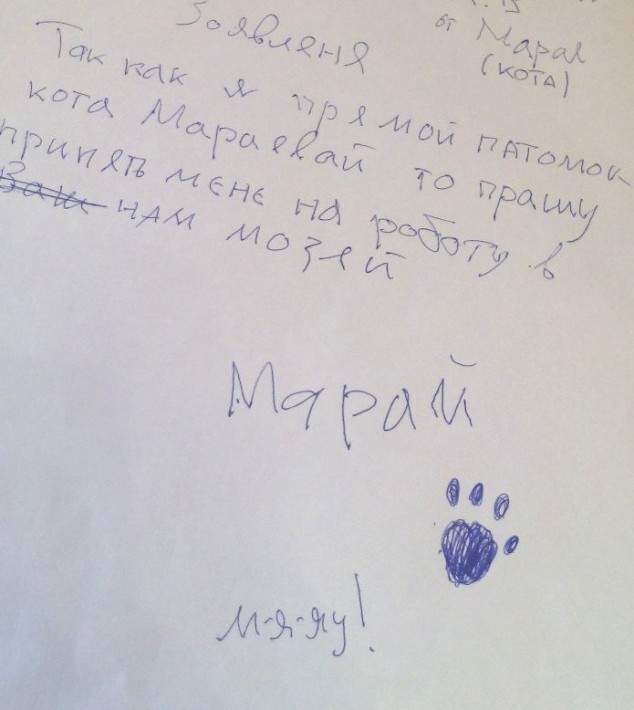 от Мараё
(КОТА)
Зоявленя
Так как я прямой патомок
кота Мараевай то прашу
принять мене на роботу в
Ваш нам мозей
Марай
м-я-яу!